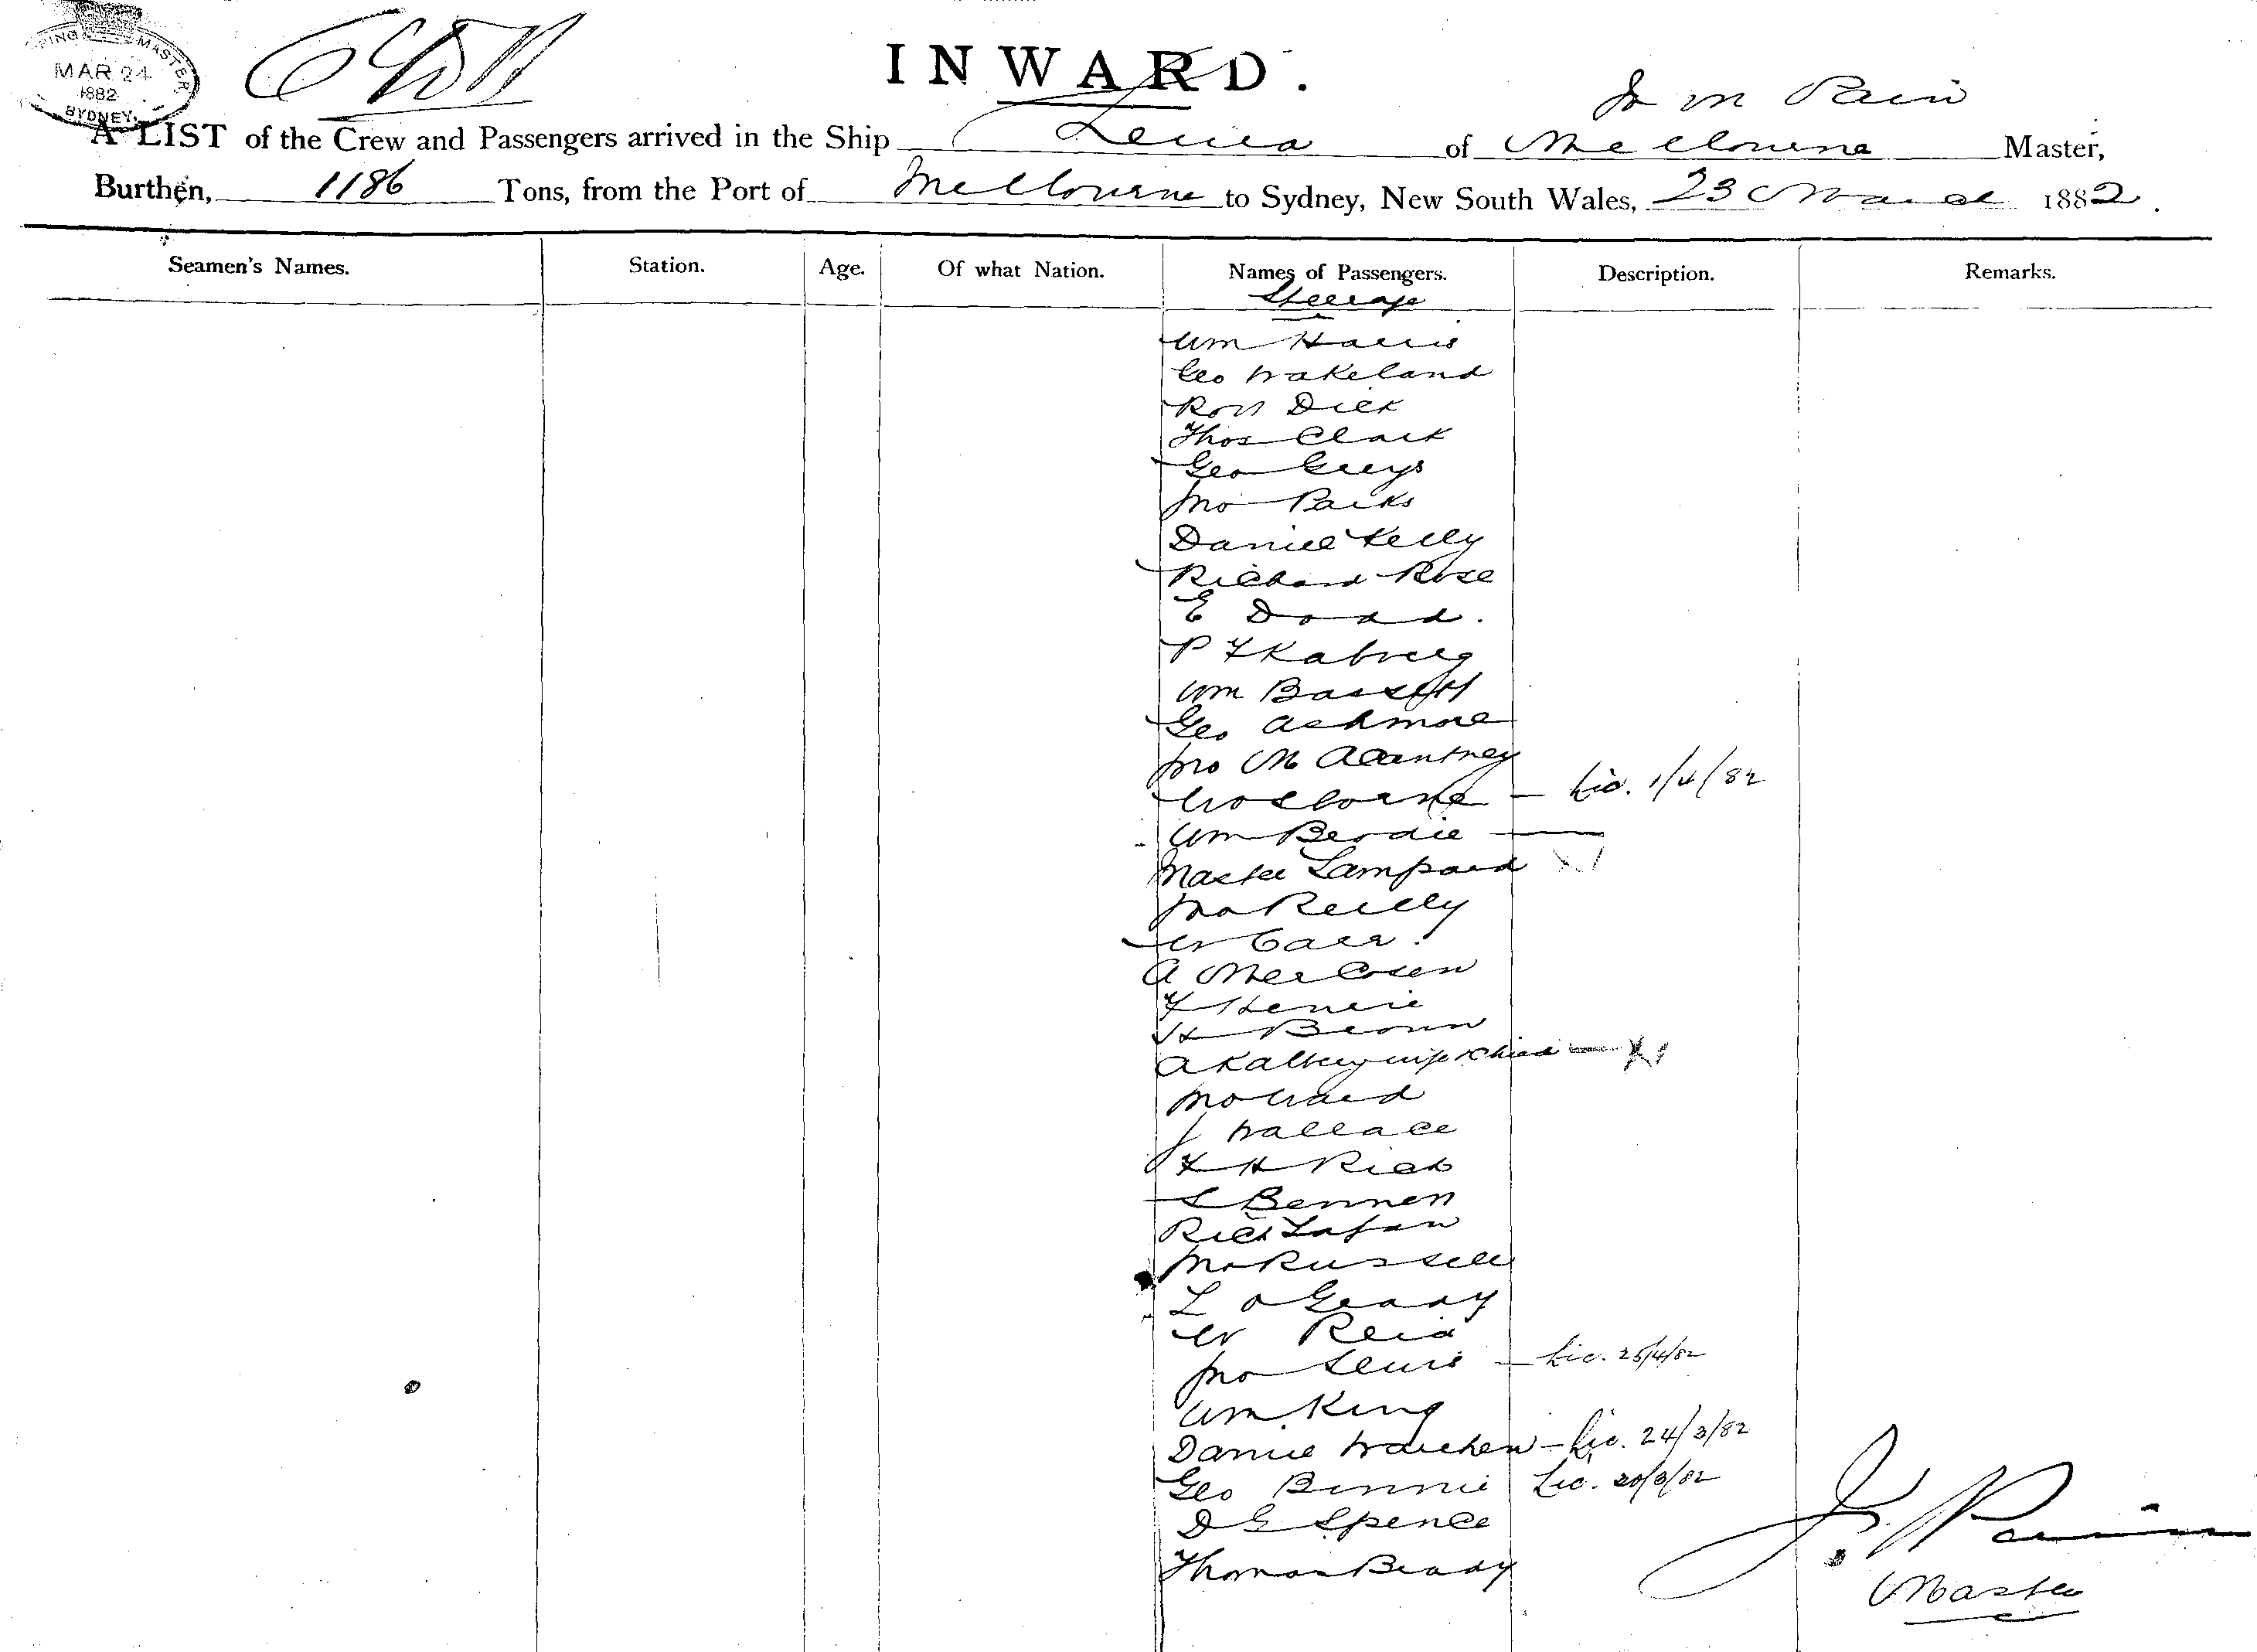 SHIPPING MASTER
MAR 24
1882
SYDNEY
INWARD.
J M Pain
A LIST of the Crew and Passengers arrived in the Ship of Melbourne Master,
Burthen, 1186 Tons, from the Port of Melbourne to Sydney, New South Wales, 23 March 1882.
Seamen's Names. Station. Age. Of what Nation. Names of Passengers. Description. Remarks.
Steerage
Wm Harris
Geo Wakeland
Robt Dick
Thos Clark
Geo Greys
Jno Parks
Daniel Kelly
Richard Rose
E Dodd.
P F
Wm Bassett
Geo Ashmore
Jno McCartney
W Osborne - Lic. 1/4/82
Wm Berdie
Master Lampard X1
Jno Reilly
W Carr.
A
F
H Brown
A wife & child - X1
Jno Ward
J Wallace
F H Rich
S Bennett
Richd Lafan
Jno Russell
L O Grady
W Reid
Jno Lewis - Lic. 25/4/82
Wm King
Daniel - Lic. 24/3/82
Geo Binnie Lic. 20/3/82
D G Spence
Thomas Brady
J. Pain
Master